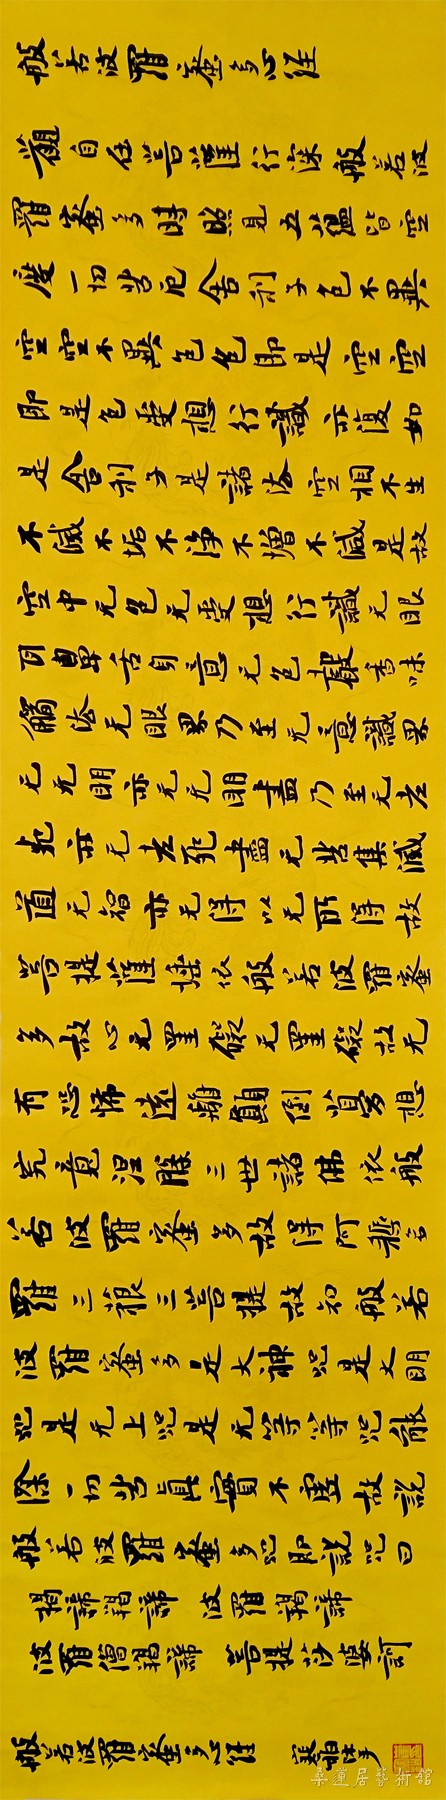 般若波羅蜜多心經
觀自在菩薩行深般若波
羅蜜多時照見五蘊皆空
度一切苦厄舍利子色不異
空空不異色色即是空空
即是色受想行識亦復如
是舍利子是諸法空相不生
不滅不垢不淨不增不減是故
空中无色无受想行識无眼
耳鼻舌身意无色聲香味
觸法无眼界乃至无意識界
无无明亦无无明盡乃至无老
死亦无老死盡无苦集滅
道无智亦无得以无所得故
菩提薩埵依般若波羅蜜
多故心无罣礙无罣礙故无
有恐怖遠離顛倒夢想
究竟涅槃三世諸佛依般
若波羅蜜多故得阿耨多
羅三藐三菩提故知般若
波羅蜜多是大神咒是大明
咒是无上咒是无等等咒能
除一切苦真實不虛故說
般若波羅蜜多咒即說咒曰
揭諦揭諦 波羅揭諦
波羅僧揭諦 菩提莎婆訶
般若波羅蜜多心經
桑蓮居藝術館